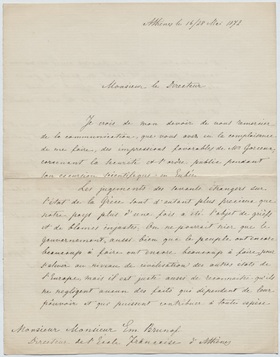 Athènes le 16/28 Mai 1872
Monsieur le Directeur
Je crois de mon devoir de vous remercier
de la communication, que vous avez eu la complaisance
de me faire, des impressions favorables de Mr Gorceix
concernant la sécurité et l'ordre public pendant
son excursion scientifique en Eubée.
Les jugements des savants étrangers sur
l'état de la Grèce sont d'autant plus précieux que
notre pays plus d'une fois a été l'objet de griefs
et de blâmes injustes. On ne pourrait nier que le
gouvernement, aussi bien que le peuple, ont encore
beaucoup à faire
arriver au niveau de civilisation des autres états de
l'Europe; mais il est juste aussi de reconnaître qu'ils
ne négligent aucun des faits qui dépendent de leur
pouvoir et qui puissent contribuer à toute espèce
Monsieur Monsieur Em Burnouf
Directeur de l'Ecole Française d'Athènes